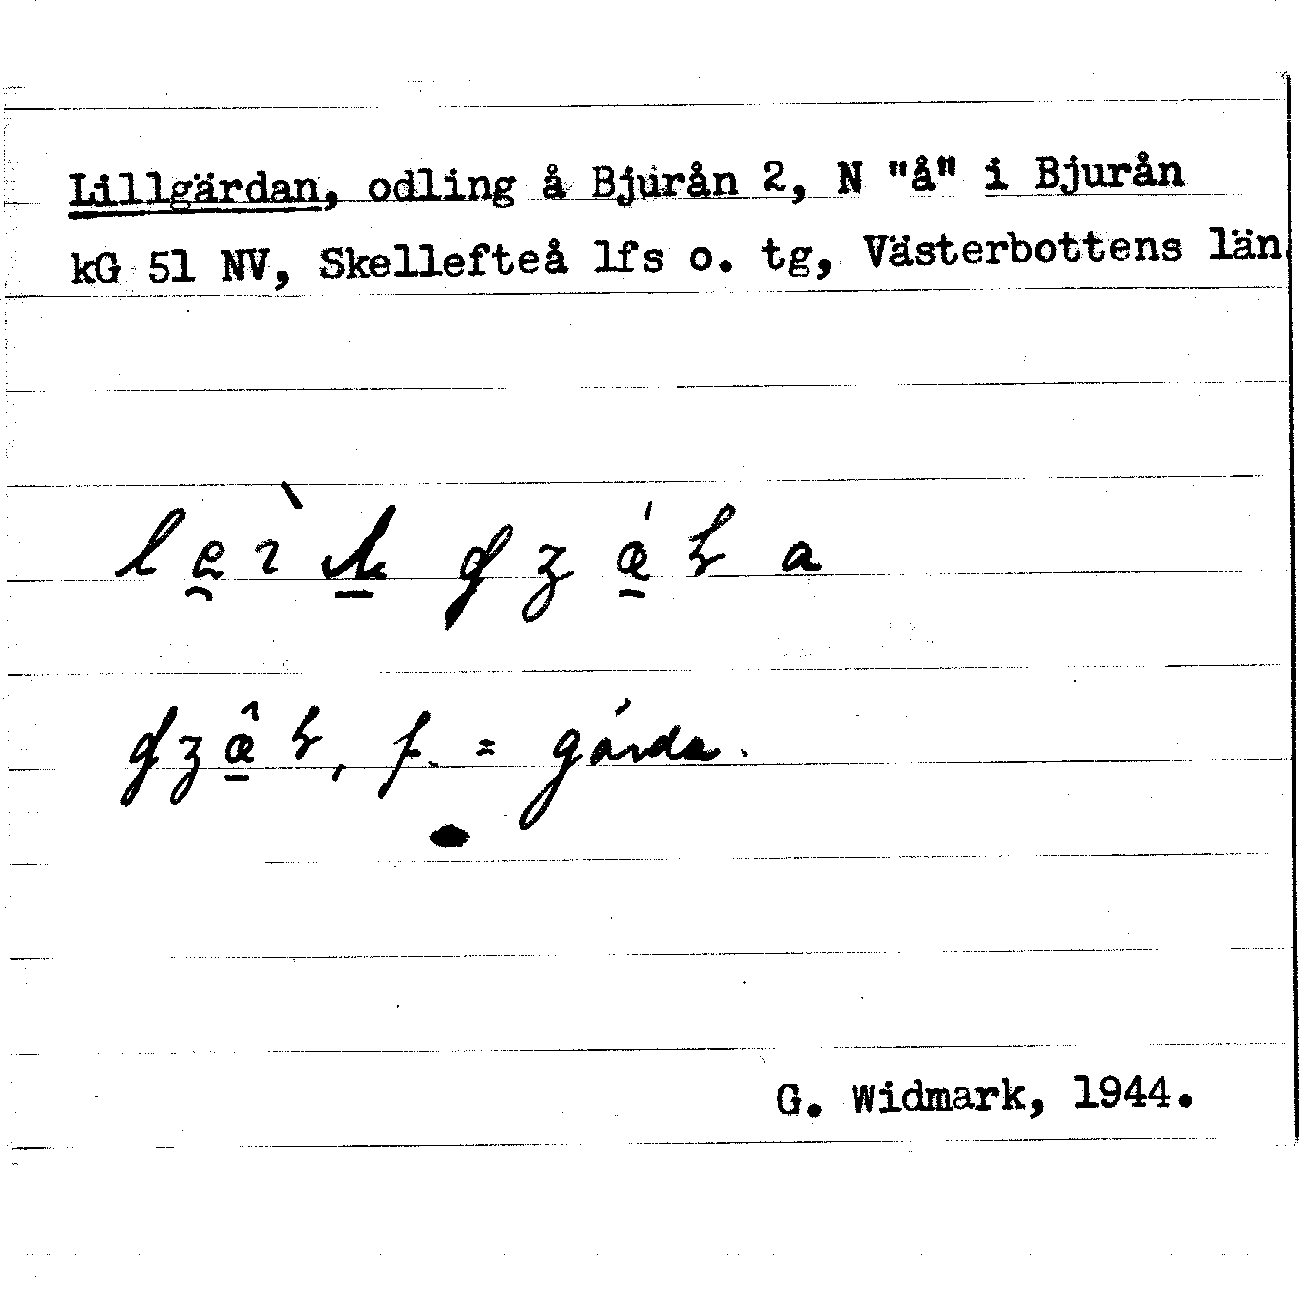 Lillgärdan, odling å Bjurån 2, N "å" i Bjurån
kG 51 NV, Skellefteå lfs o. tg, Västerbottens län
f. = gärda.
G. Widmark, 1944.